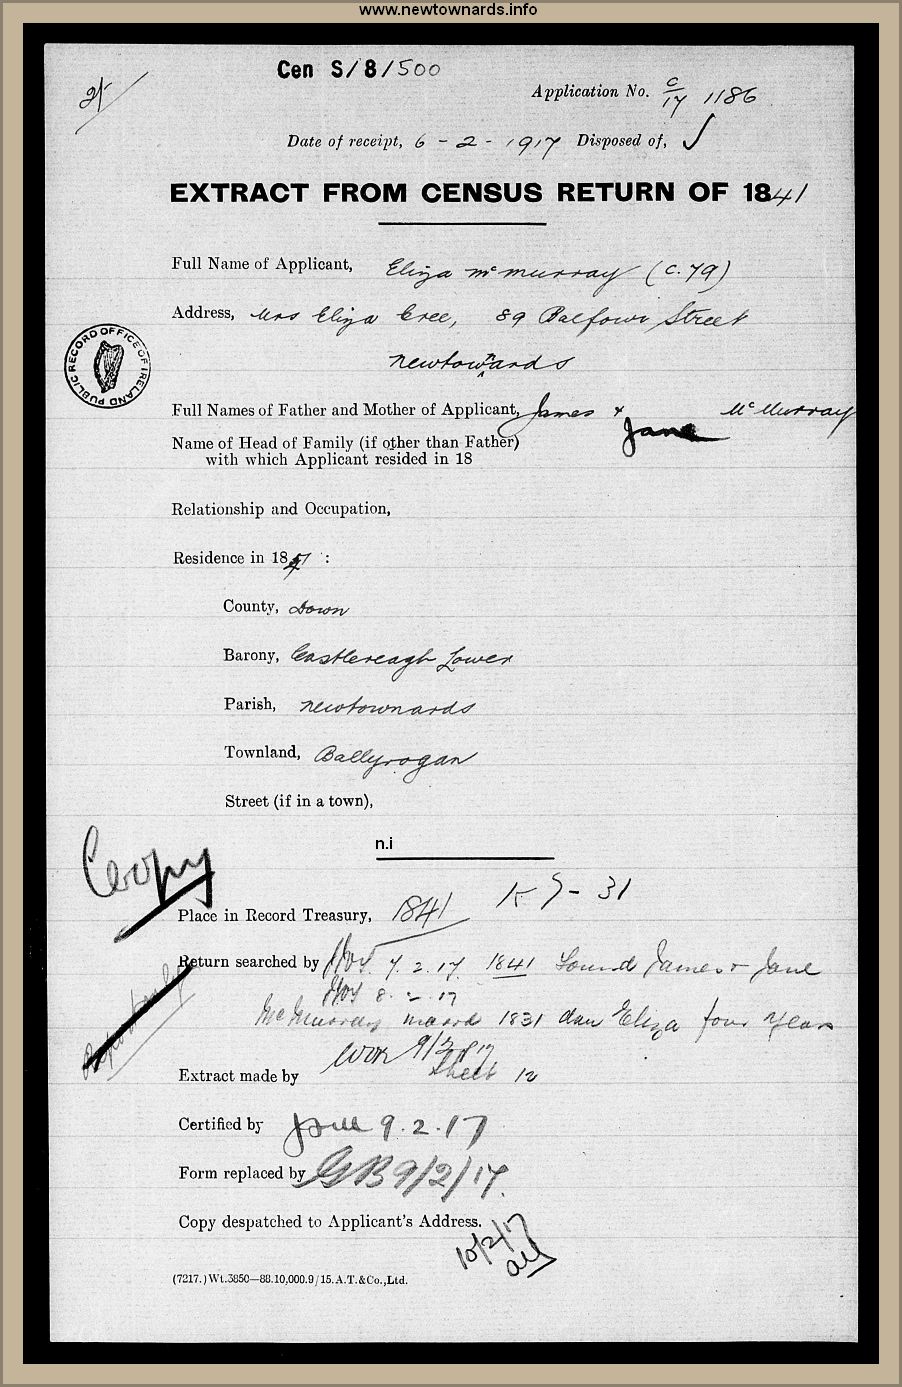 www.newtownards.info
Cen S/8/500
Application No. C/17 1186
Date of receipt, 6 - 2 - 1917 Disposed of,
EXTRACT FROM CENSUS RETURN OF 1841
Full Name of Applicant, Eliza Mc Murray (C. 79)
Address, Mrs Eliza Cree, 89 Balfour Street
Newtownards
PUBLIC RECORD OFFICE OF IRELAND
Full Names of Father and Mother of Applicant, James + Jane McMurray
Name of Head of Family (if other than Father)
with which Applicant resided in 18
Relationship and Occupation,
Residence in 1841 :
County, Down
Barony, Castlereagh Lower
Parish, Newtownards
Townland, Ballyrogan
Street (if in a town),
n.i
Copy
Place in Record Treasury, 1841 - 31
Return searched by 7. 2. 17. 1841 Found James + Jane
8. 2. 17
McMurray mard 1831 dau Eliza four years
9/2/17
Extract made by Sheet 12
Certified by 9. 2. 17
Form replaced by GB 9/2/17.
Copy despatched to Applicant's Address.
10/2/17
(7217.) Wt.3850—88.10,000.9/15.A.T.&Co.,Ltd.